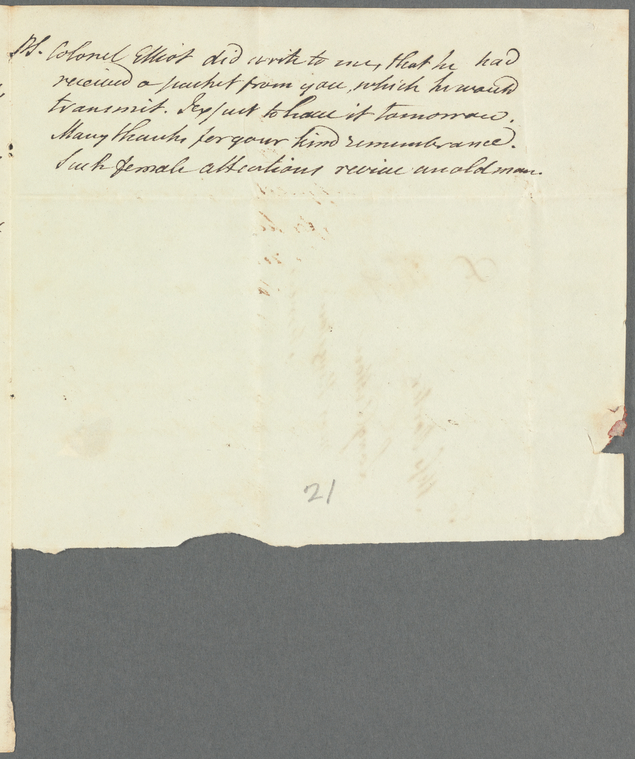 P.S. Colonel Elliot did write to me, that he had
received a packet from you, which he would
transmit. I expect to have it tomorrow.
Many thanks for your kind remembrance.
Such female attentions revive an old man.
21